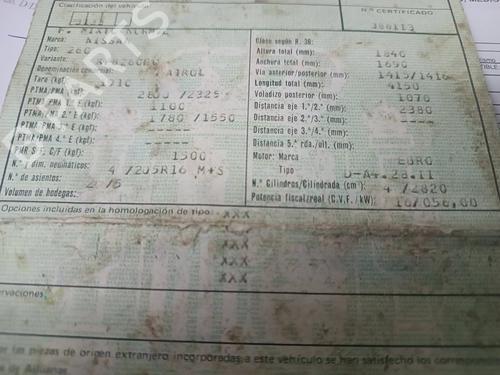 Clasificación del vehículo
Nº CERTIFICADO
Marca: NISSAN
Tipo: 260
Variante:
Denominación comercial: PATROL
Tara (kgf)
PTMA/PMA (kgf) 2800 /2325
PTMA/PMA 1.º E (kgf) 1100
PTMA/PMA 2.º E (kgf) 1780 /1550
PTMA/PMA 3.º E (kgf) -----
PTMA/PMA 4.º E (kgf) -----
PMR S/F, C/F (kgf) 1500
N.º y dim. neumáticos: 4 /205R16 M+S
N.º de asientos:
Volumen de bodegas:
Gálibo según H. 36:
Altura total (mm): 1840
Anchura total (mm): 1690
Vía anterior/posterior (mm): 1415/1416
Longitud total (mm): 4150
Voladizo posterior (mm): 1070
Distancia eje 1.º/2.º (mm): 2380
Distancia eje 2.º/3.º (mm): -----
Distancia eje 3.º/4.º (mm): -----
Distancia 5.ª rda./últ. (mm): -----
Motor: Marca EBRO
Tipo D-A4.28.II
N.º Cilindros/Cilindrada (cm³) 4 /2820
Potencia fiscal/real (C.V.F./kW): 16/056,00
Opciones incluidas en la homologación de tipo: XXX
XXX
XXX
XXX
ervaciones:
las piezas de origen extranjero incorporadas a este vehículo se han satisfecho los correspondi
de Aduanas